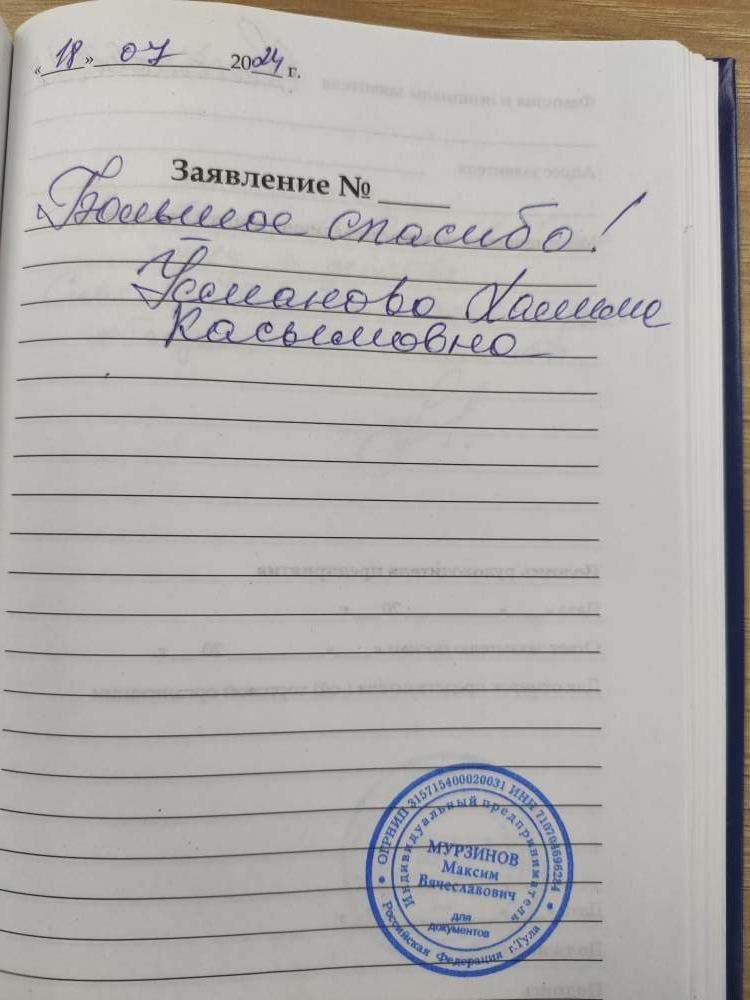 «18» 07 2024 г.
Заявление №
Большое спасибо!
Усманова Халиме
Касымовна
ОГРНИП 315715400020031 ИНН 710704696284
Индивидуальный предприниматель
МУРЗИНОВ
Максим
Вячеславович
для
документов
Российская Федерация г.Тула